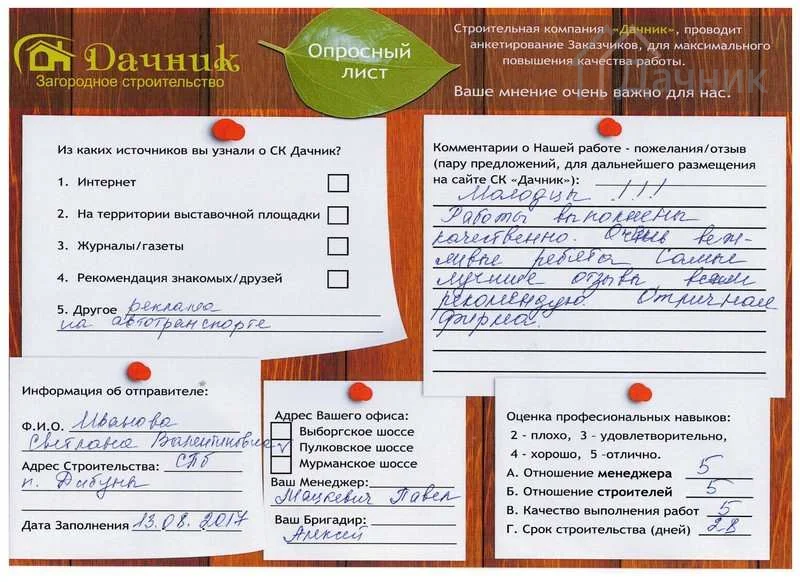 Дачник
Загородное строительство
Опросный
лист
Строительная компания «Дачник», проводит
анкетирование Заказчиков, для максимального
повышения качества работы.
Дачник
Ваше мнение очень важно для нас.
Из каких источников вы узнали о СК Дачник?
1. Интернет
2. На территории выставочной площадки
3. Журналы/газеты
4. Рекомендация знакомых/друзей
5. Другое реклама
на автотранспорте
Комментарии о Нашей работе - пожелания/отзыв
(пару предложений, для дальнейшего размещения
на сайте СК «Дачник»):
Молодцы !!!
Работы выполнены
качественно. Очень веж-
ливые ребята. Самые
лучшие отзывы всем
рекомендую. Отличная
фирма.
Информация об отправителе:
Ф.И.О. Иванова
Светлана Валентиновна
Адрес Строительства: СПб
п. Дибуны
Дата Заполнения 13.08.2017
Адрес Вашего офиса:
Выборгское шоссе
Пулковское шоссе
Мурманское шоссе
Ваш Менеджер:
Мацкевич Павел
Ваш Бригадир:
Алексей
Оценка профессиональных навыков:
2 - плохо, 3 - удовлетворительно,
4 - хорошо, 5 -отлично.
А. Отношение менеджера 5
Б. Отношение строителей 5
В. Качество выполнения работ 5
Г. Срок строительства (дней) 28